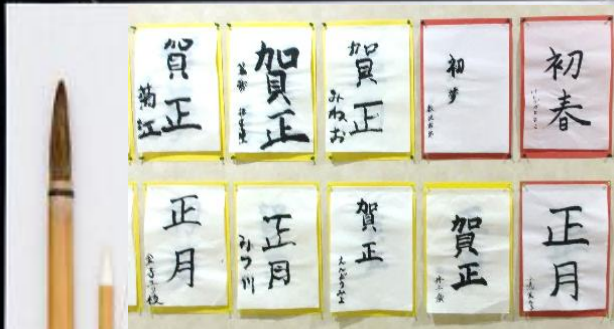 賀正
菊江
賀正
賀正
みねお
初夢
初春
正月
正月
みつ川
賀正
えんどうみよ
賀正
正月